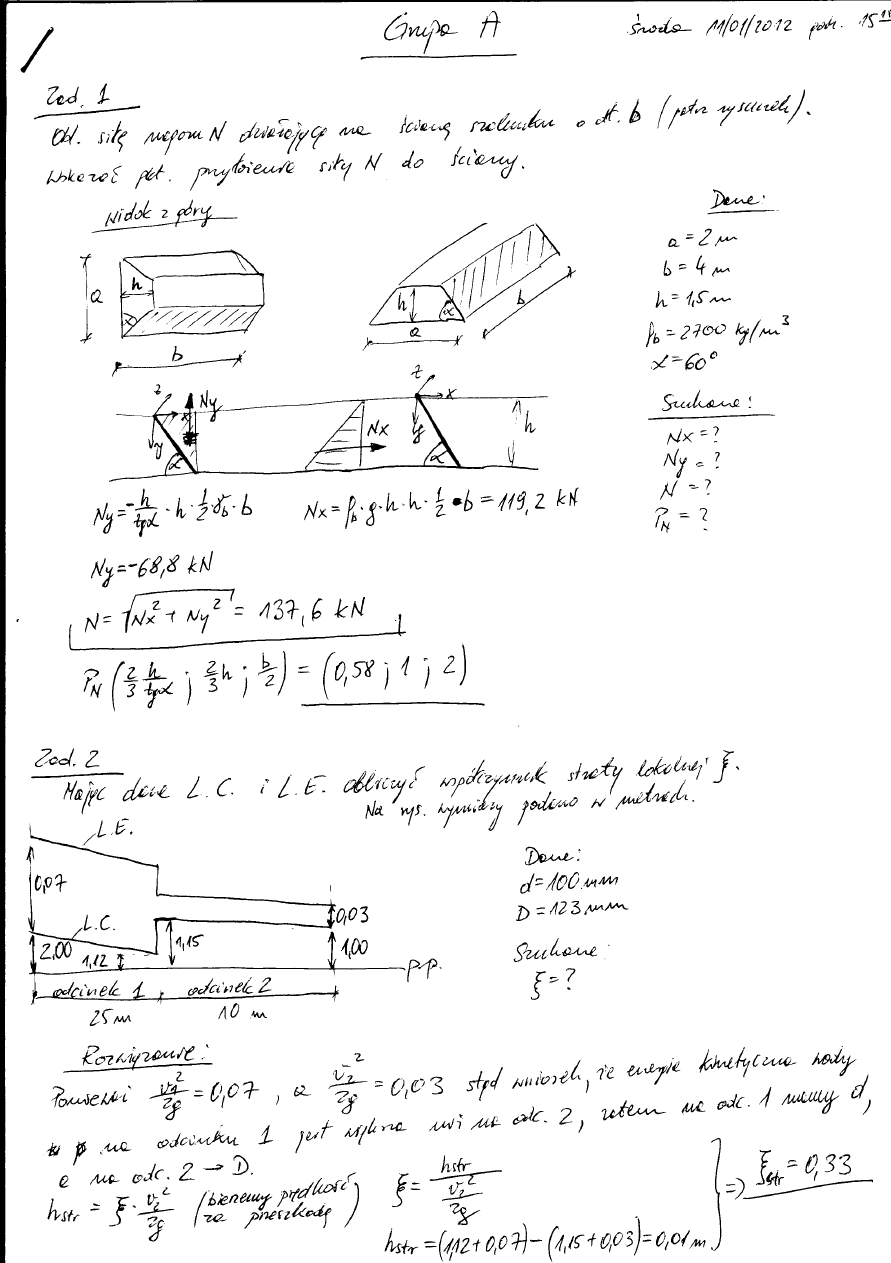 Grupa A
środa 11/01/2012 godz. 15¹⁵
Zad. 1
Obl. siłę naporu N działającą na ścianę szalunku o dł. b (patrz rysunek).
Wskazać pkt. przyłożenia siły N do ściany.
Widok z góry
Dane:
a = 2 m
b = 4 m
h = 1,5 m
ρb = 2700 kg/m³
α = 60°
Szukane:
Nx = ?
Ny = ?
N = ?
PN = ?
a
h
α
b
h
α
a
b
z
x
y
Ny
α
Nx
z
x
y
α
h
Ny = -h/tgα · h · 1/2 γb · b
Nx = ρb · g · h · h · 1/2 · b = 119,2 kN
Ny = -68,8 kN
N = √(Nx² + Ny²) = 137,6 kN
PN (2/3 h/tgα ; 2/3 h ; b/2) = (0,58 ; 1 ; 2)
Zad. 2
Mając dane L.C. i L.E. obliczyć współczynnik straty lokalnej ξ.
Na rys. wymiary podano w metrach.
L.E.
0,07
L.C.
2,00
1,12
1,15
0,03
1,00
p.p.
odcinek 1
odcinek 2
25 m
10 m
Dane:
d = 100 mm
D = 123 mm
Szukane:
ξ = ?
Rozwiązanie:
Ponieważ v₁²/2g = 0,07, a v₂²/2g = 0,03 stąd wniosek, że energia kinetyczna wody
na odcinku 1 jest większa niż na odc. 2, zatem na odc. 1 mamy d,
a na odc. 2 → D.
hstr = ξ · v₂²/2g (bierzemy prędkość za przeszkodą)
ξ = hstr / (v₂²/2g)
hstr = (1,12 + 0,07) - (1,15 + 0,03) = 0,01 m
=> ξstr = 0,33